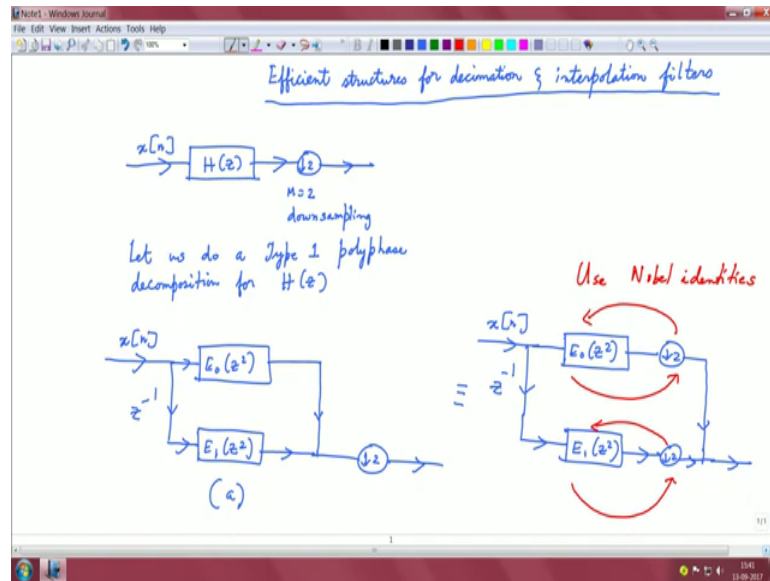 Note1 - Windows Journal
File Edit View Insert Actions Tools Help
100%
B I
Efficient structures for decimation & interpolation filters
x[n]
H(z)
↓2
M=2
downsampling
Let us do a Type 1 polyphase
decomposition for H(z)
Use Nobel identities
x[n]
E₀(z²)
z⁻¹
E₁(z²)
↓2
(a)
≡
x[n]
E₀(z²)
↓2
z⁻¹
E₁(z²)
↓2
1
1/1
15:41
13-09-2017